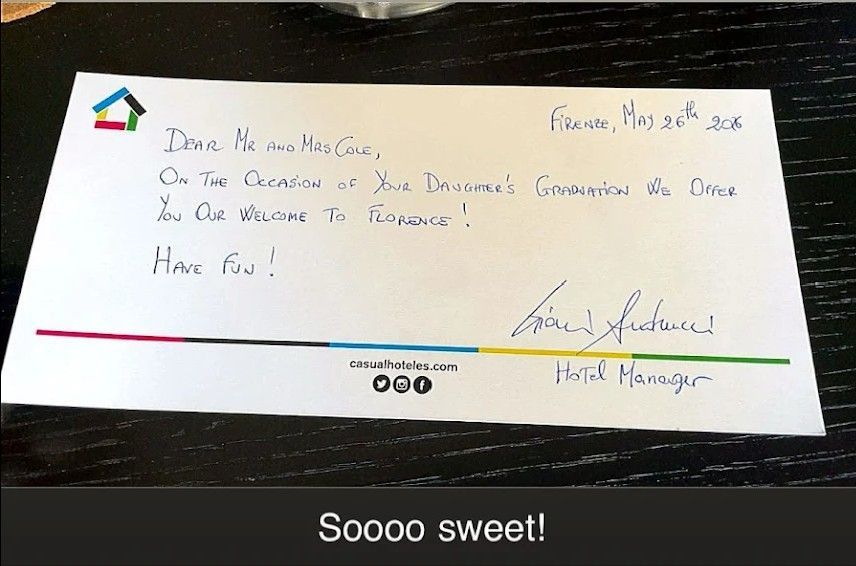 Firenze, May 26th
Dear Mr and Mrs Cole,
On The Occasion of Your Daughter's Graduation We Offer
You Our Welcome To Florence!
Have Fun!
Hotel Manager
casualhoteles.com
Soooo sweet!